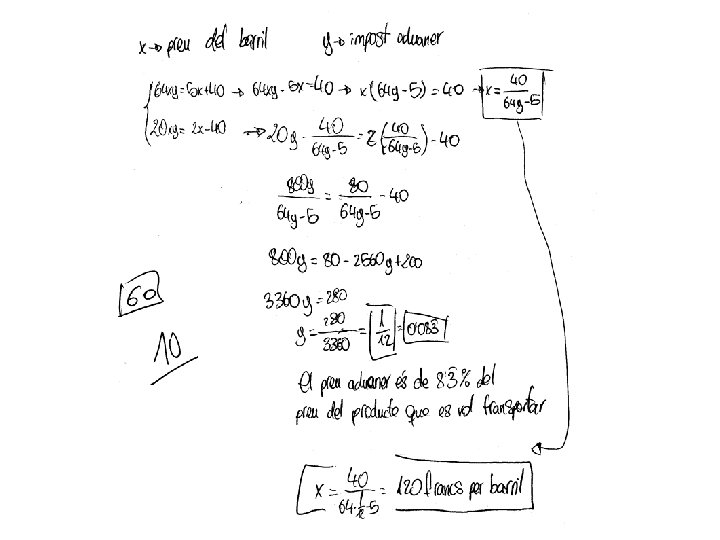 x → preu del barril y → impost aduaner
64xy = 5x+40 → 64xy - 5x = 40 → x(64y-5) = 40 → x = 40/(64y-5)
20xy = 2x-40 → 20y · 40/(64y-5) = 2(40/(64y-5)) - 40
800y/(64y-5) = 80/(64y-5) - 40
800y = 80 - 2560y + 200
60
3360y = 280
10
y = 280/3360 = 1/12 = 0'083
El preu aduaner és de 8'3% del
preu del producte que es vol transportar
x = 40/(64·1/12-5) = 120 francs per barril